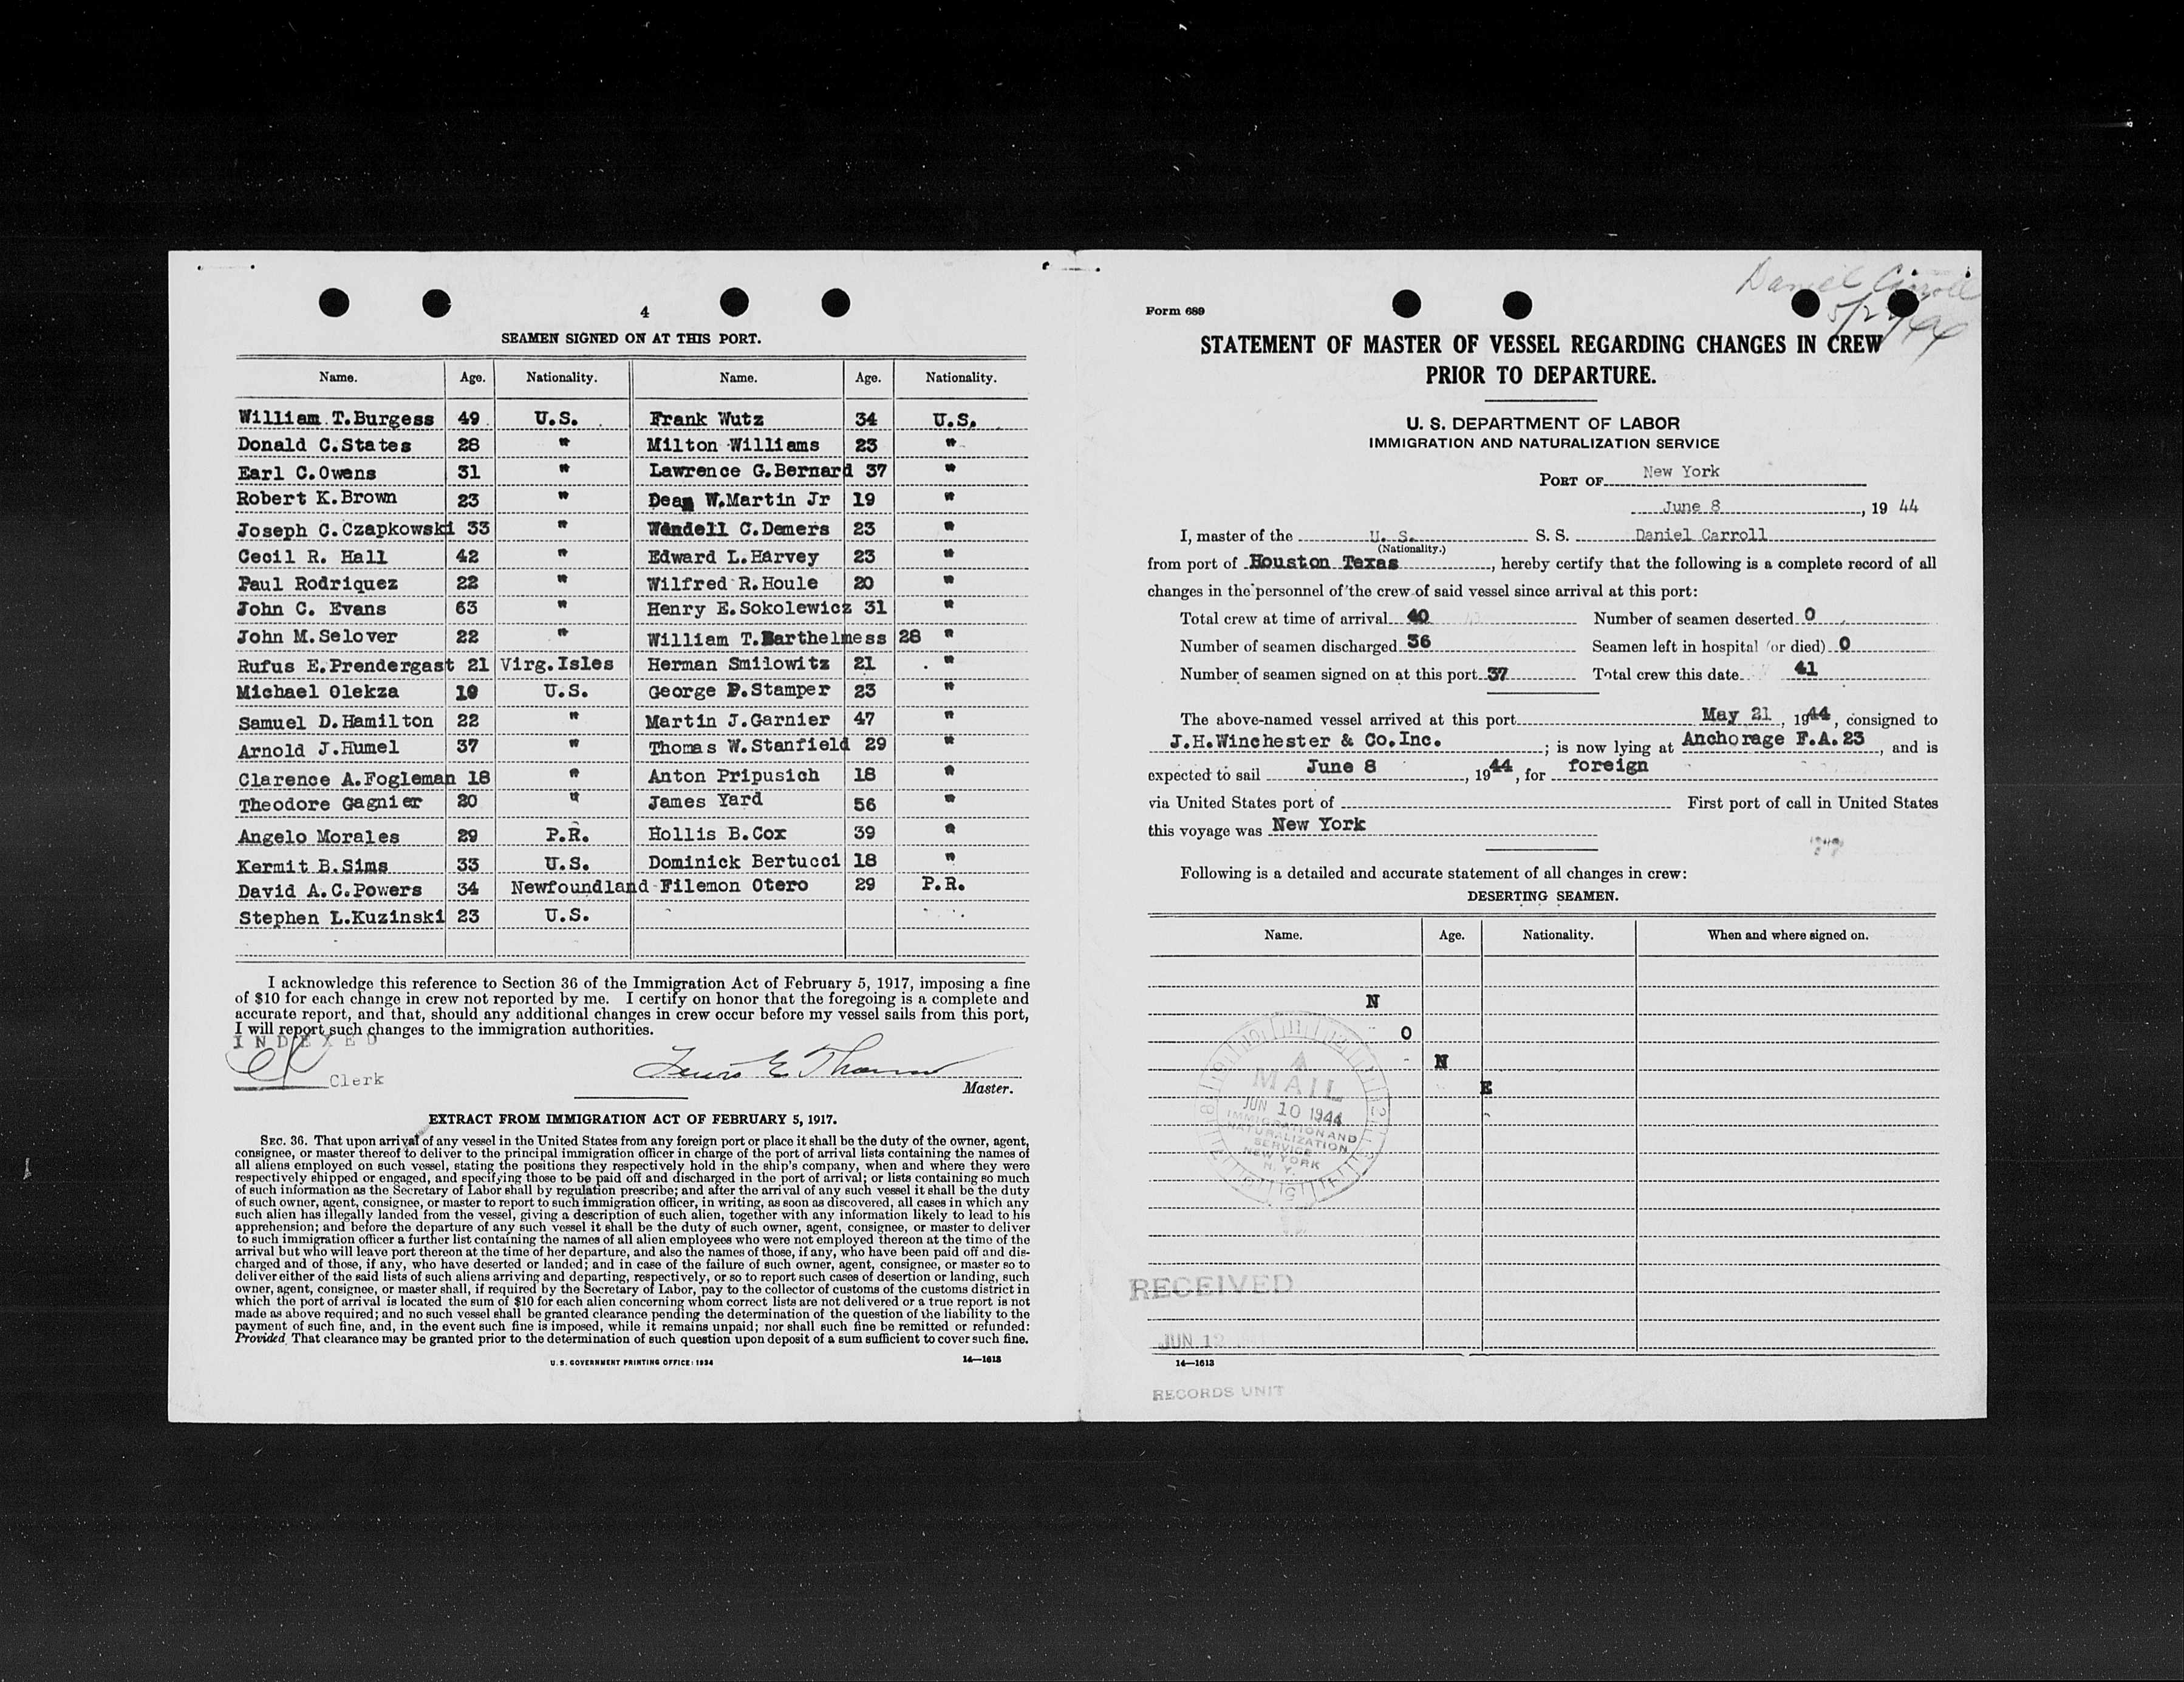 4
SEAMEN SIGNED ON AT THIS PORT.
Name. Age. Nationality. Name. Age. Nationality.
William T.Burgess 49 U.S. Frank Wutz 34 U.S.
Donald C.States 28 " Milton Williams 23 "
Earl C.Owens 31 " Lawrence G.Bernard 37 "
Robert K.Brown 23 " Dean W.Martin Jr 19 "
Joseph C.Czapkowski 33 " Wendell C.Demers 23 "
Cecil R. Hall 42 " Edward L.Harvey 23 "
Paul Rodriquez 22 " Wilfred R.Houle 20 "
John C. Evans 63 " Henry E.Sokolewicz 31 "
John M.Selover 22 " William T.Barthelmess 28 "
Rufus E.Prendergast 21 Virg.Isles Herman Smilowitz 21 "
Michael Olekza 19 U.S. George P.Stamper 23 "
Samuel D.Hamilton 22 " Martin J.Garnier 47 "
Arnold J.Humel 37 " Thomas W.Stanfield 29 "
Clarence A.Fogleman 18 " Anton Pripusich 18 "
Theodore Gagnier 20 " James Yard 56 "
Angelo Morales 29 P.R. Hollis B.Cox 39 "
Kermit B.Sims 33 U.S. Dominick Bertucci 18 "
David A.C.Powers 34 Newfoundland Filemon Otero 29 P.R.
Stephen L.Kuzinski 23 U.S.
I acknowledge this reference to Section 36 of the Immigration Act of February 5, 1917, imposing a fine
of $10 for each change in crew not reported by me. I certify on honor that the foregoing is a complete and
accurate report, and that, should any additional changes in crew occur before my vessel sails from this port,
I will report such changes to the immigration authorities.
INDEXED
Clerk
Lewis E Thomas
Master.
EXTRACT FROM IMMIGRATION ACT OF FEBRUARY 5, 1917.
SEC. 36. That upon arrival of any vessel in the United States from any foreign port or place it shall be the duty of the owner, agent,
consignee, or master thereof to deliver to the principal immigration officer in charge of the port of arrival lists containing the names of
all aliens employed on such vessel, stating the positions they respectively hold in the ship's company, when and where they were
respectively shipped or engaged, and specifying those to be paid off and discharged in the port of arrival; or lists containing so much
of such information as the Secretary of Labor shall by regulation prescribe; and after the arrival of any such vessel it shall be the duty
of such owner, agent, consignee, or master to report to such immigration officer, in writing, as soon as discovered, all cases in which any
such alien has illegally landed from the vessel, giving a description of such alien, together with any information likely to lead to his
apprehension; and before the departure of any such vessel it shall be the duty of such owner, agent, consignee, or master to deliver
to such immigration officer a further list containing the names of all alien employees who were not employed thereon at the time of the
arrival but who will leave port thereon at the time of her departure, and also the names of those, if any, who have been paid off and dis-
charged and of those, if any, who have deserted or landed; and in case of the failure of such owner, agent, consignee, or master so to
deliver either of the said lists of such aliens arriving and departing, respectively, or so to report such cases of desertion or landing, such
owner, agent, consignee, or master shall, if required by the Secretary of Labor, pay to the collector of customs of the customs district in
which the port of arrival is located the sum of $10 for each alien concerning whom correct lists are not delivered or a true report is not
made as above required; and no such vessel shall be granted clearance pending the determination of the question of the liability to the
payment of such fine, and, in the event such fine is imposed, while it remains unpaid; nor shall such fine be remitted or refunded:
Provided, That clearance may be granted prior to the determination of such question upon deposit of a sum sufficient to cover such fine.
U. S. GOVERNMENT PRINTING OFFICE: 1934 14—1613
Daniel Carroll
Form 689
STATEMENT OF MASTER OF VESSEL REGARDING CHANGES IN CREW
PRIOR TO DEPARTURE.
U. S. DEPARTMENT OF LABOR
IMMIGRATION AND NATURALIZATION SERVICE
PORT OF New York
June 8, 1944
I, master of the U. S. S. S. Daniel Carroll
(Nationality.)
from port of Houston Texas, hereby certify that the following is a complete record of all
changes in the personnel of the crew of said vessel since arrival at this port:
Total crew at time of arrival 40 Number of seamen deserted 0
Number of seamen discharged 36 Seamen left in hospital (or died) 0
Number of seamen signed on at this port 37 Total crew this date 41
The above-named vessel arrived at this port May 21, 1944, consigned to
J.H.Winchester & Co.Inc.; is now lying at Anchorage F.A.23, and is
expected to sail June 8, 1944, for foreign
via United States port of First port of call in United States
this voyage was New York
Following is a detailed and accurate statement of all changes in crew:
DESERTING SEAMEN.
Name. Age. Nationality. When and where signed on.
N
O
N
E
MAIL
JUN 10 1944
IMMIGRATION AND
NATURALIZATION
SERVICE
NEW YORK
N. Y.
RECEIVED
JUN 12
14—1613
RECORDS UNIT